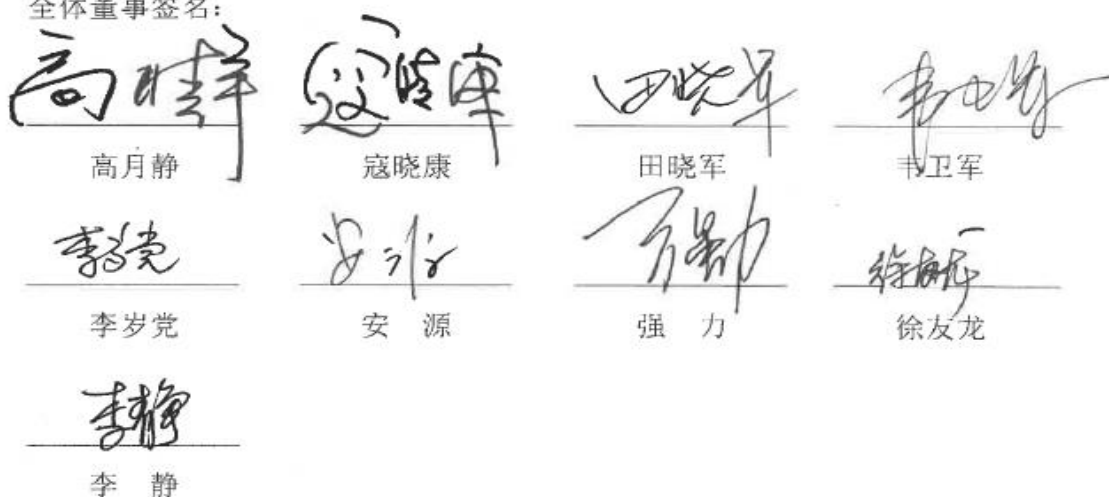 全体董事签名：
高月静 寇晓康 田晓军 韦卫军
高月静 寇晓康 田晓军 韦卫军
李岁党 安源 强力 徐友龙
李岁党 安 源 强 力 徐友龙
李静
李 静